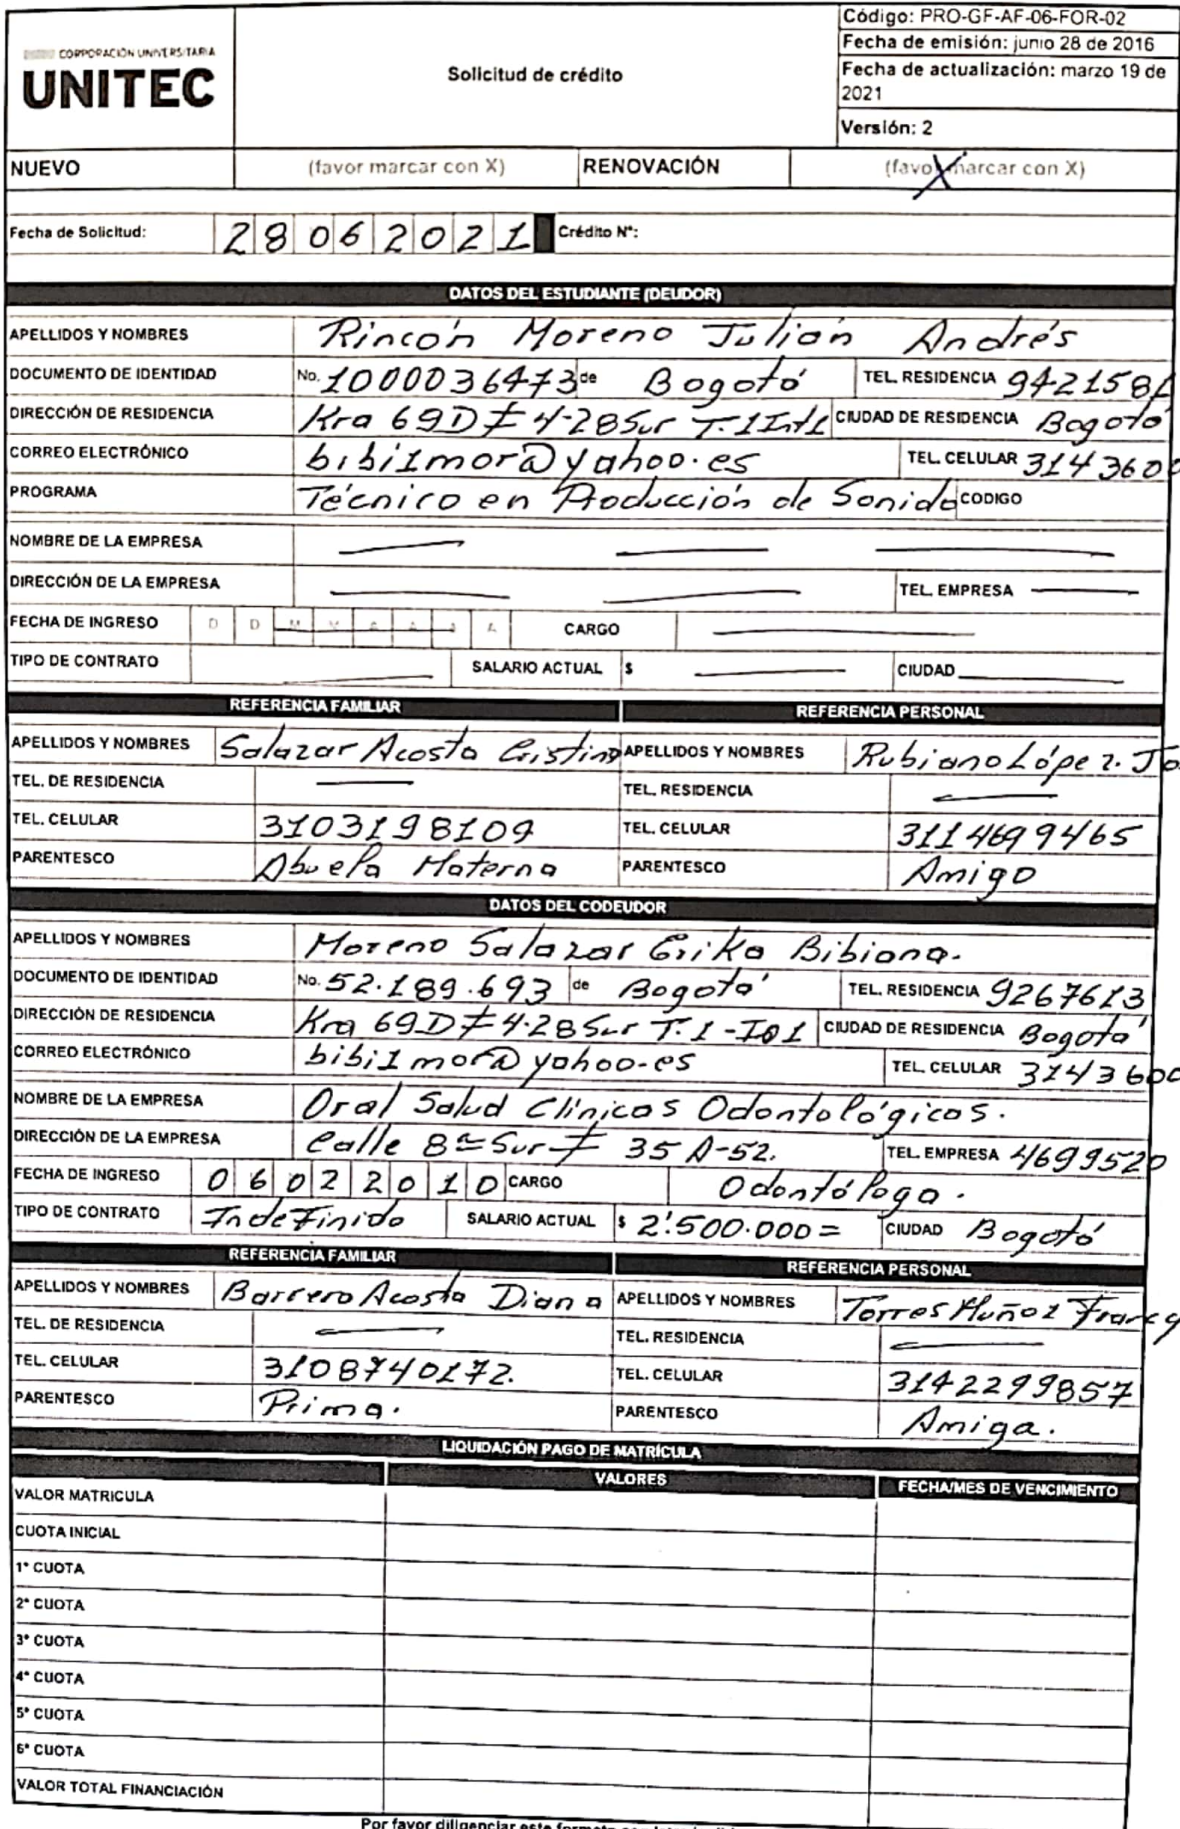 CORPORACIÓN UNIVERSITARIA
UNITEC
Solicitud de crédito
Código: PRO-GF-AF-06-FOR-02
Fecha de emisión: junio 28 de 2016
Fecha de actualización: marzo 19 de
2021
Versión: 2
NUEVO (favor marcar con X) RENOVACIÓN (favor marcar con X) X
Fecha de Solicitud: 28062021 Crédito N°:
DATOS DEL ESTUDIANTE (DEUDOR)
APELLIDOS Y NOMBRES Rincón Moreno Julián Andrés
DOCUMENTO DE IDENTIDAD No. 1000036473 de Bogotá TEL. RESIDENCIA 942158
DIRECCIÓN DE RESIDENCIA Kra 69D # 4-28 Sur T.1 Int1 CIUDAD DE RESIDENCIA Bogotá
CORREO ELECTRÓNICO bibi1mor@yahoo.es TEL. CELULAR 3143600
PROGRAMA Técnico en Producción de Sonido CODIGO
NOMBRE DE LA EMPRESA
DIRECCIÓN DE LA EMPRESA TEL. EMPRESA
FECHA DE INGRESO D D M M A A A A CARGO
TIPO DE CONTRATO SALARIO ACTUAL $ CIUDAD
REFERENCIA FAMILIAR REFERENCIA PERSONAL
APELLIDOS Y NOMBRES Salazar Acosta Cristina APELLIDOS Y NOMBRES Rubiano López. Jo
TEL. DE RESIDENCIA TEL. RESIDENCIA
TEL. CELULAR 3103198109 TEL. CELULAR 3114699465
PARENTESCO Abuela Materna PARENTESCO Amigo
DATOS DEL CODEUDOR
APELLIDOS Y NOMBRES Moreno Salazar Erika Bibiana.
DOCUMENTO DE IDENTIDAD No. 52.189.693 de Bogotá TEL. RESIDENCIA 9267613
DIRECCIÓN DE RESIDENCIA Kra 69D # 4-28 Sur T.1-I01 CIUDAD DE RESIDENCIA Bogotá
CORREO ELECTRÓNICO bibi1mor@yahoo.es TEL. CELULAR 3143600
NOMBRE DE LA EMPRESA Oral Salud Clínicas Odontológicas.
DIRECCIÓN DE LA EMPRESA Calle 8ª Sur # 35 A-52. TEL. EMPRESA 4699520
FECHA DE INGRESO 06022010 CARGO Odontóloga.
TIPO DE CONTRATO Indefinido SALARIO ACTUAL $ 2'.500.000= CIUDAD Bogotá
REFERENCIA FAMILIAR REFERENCIA PERSONAL
APELLIDOS Y NOMBRES Barrero Acosta Diana APELLIDOS Y NOMBRES Torres Muñoz Francy
TEL. DE RESIDENCIA TEL. RESIDENCIA
TEL. CELULAR 3108740172. TEL. CELULAR 3142299857
PARENTESCO Prima. PARENTESCO Amiga.
LIQUIDACIÓN PAGO DE MATRÍCULA
VALORES FECHA/MES DE VENCIMIENTO
VALOR MATRICULA
CUOTA INICIAL
1ª CUOTA
2ª CUOTA
3ª CUOTA
4ª CUOTA
5ª CUOTA
6ª CUOTA
VALOR TOTAL FINANCIACIÓN
Por favor diligenciar este formato